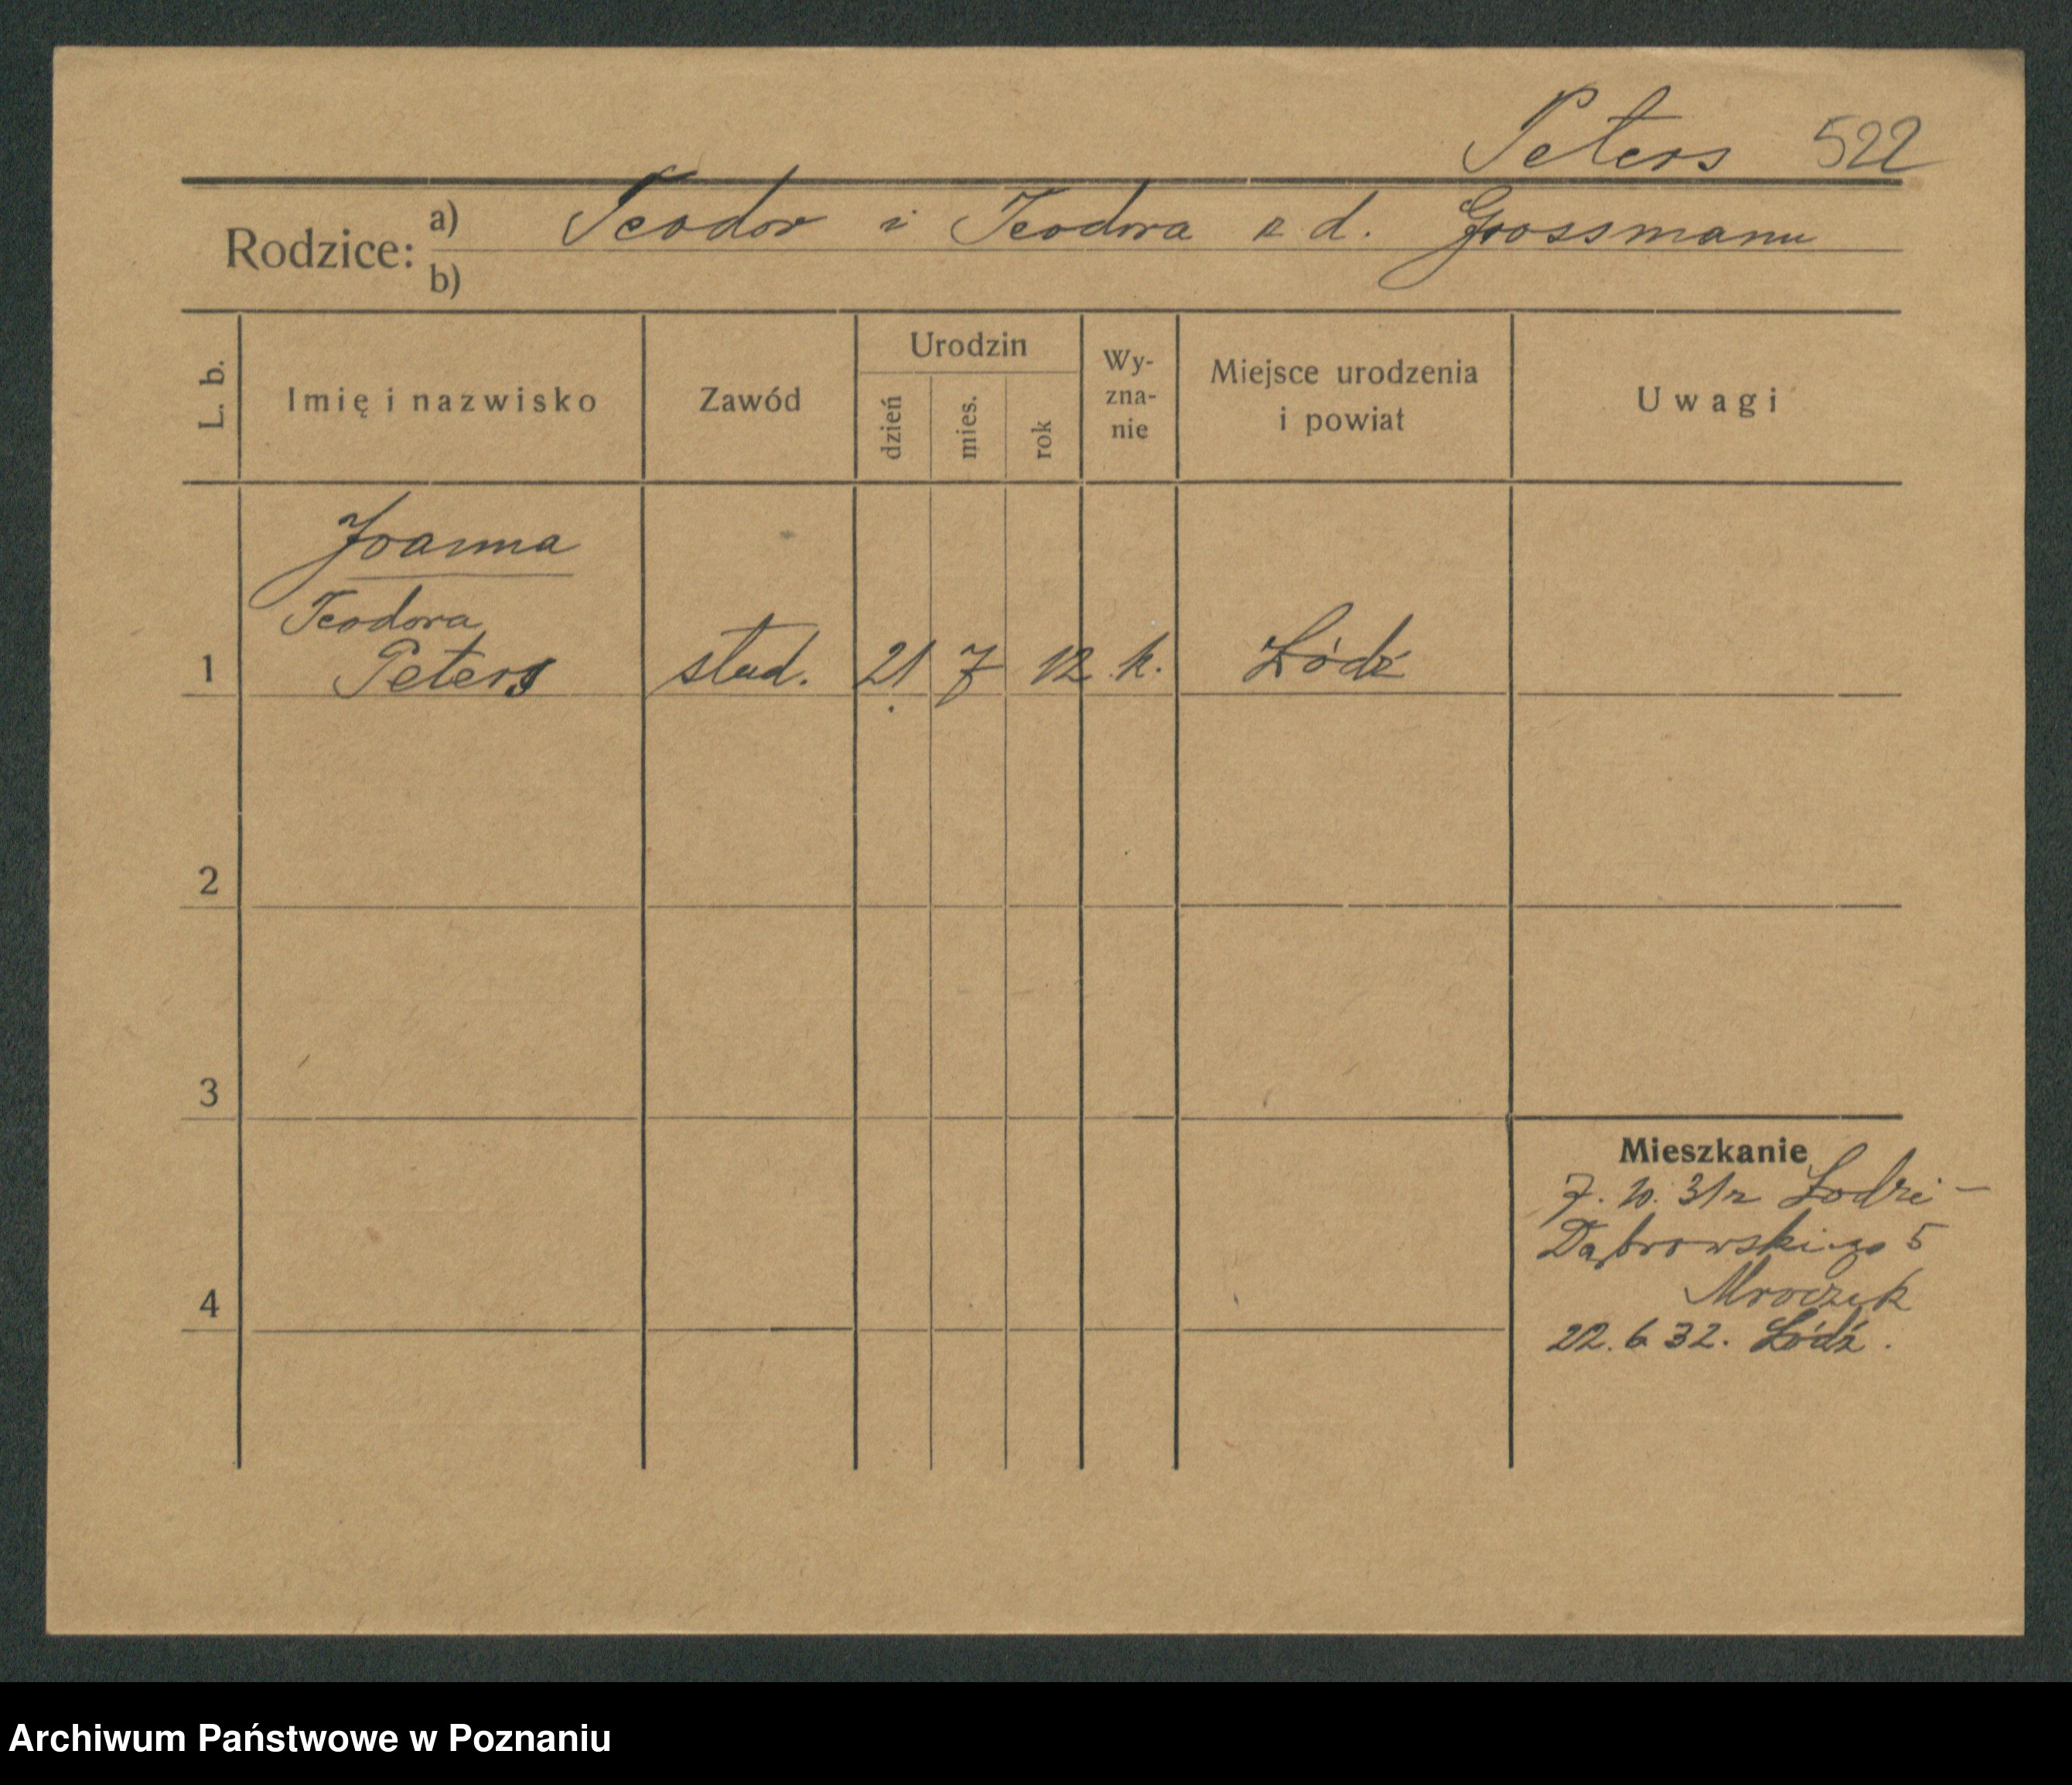 Peters 522
Rodzice: a) Teodor i Teodora z d. Grossmann
b)
L. b.
Imię i nazwisko
Zawód
Urodzin
dzień
mies.
rok
Wy-
zna-
nie
Miejsce urodzenia
i powiat
Uwagi
Joanna
Teodora
1 Peters stud. 21 7 12 k. Łódź
2
3
4
Mieszkanie
7. 10. 31 z Łodzi -
Dąbrowskiego 5
Mroczek
22. 6 32. Łódź.
Archiwum Państwowe w Poznaniu